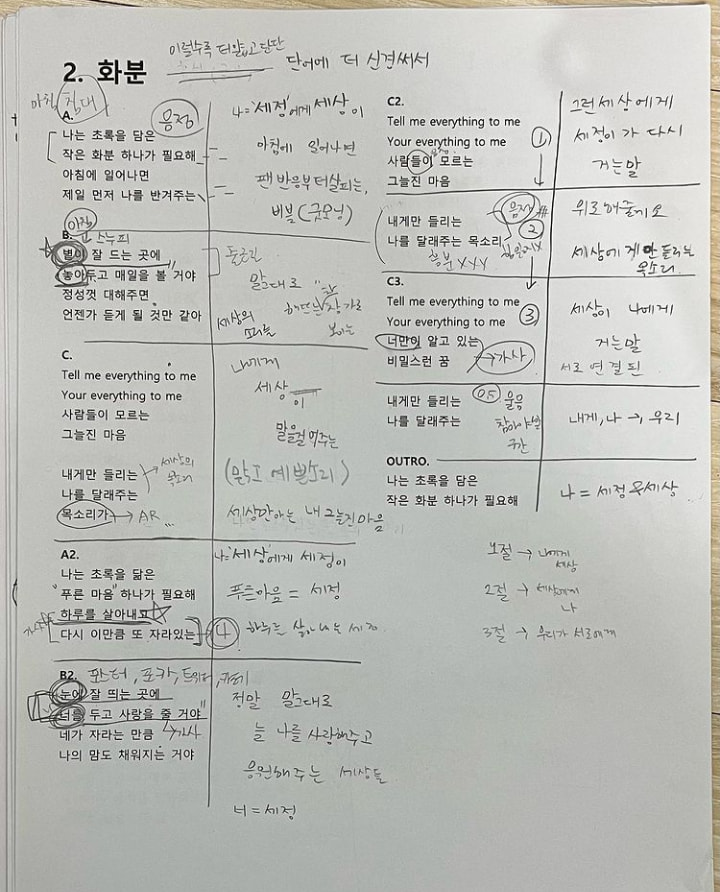 이럴수록 더 얇고 단단
2. 화분
단어에 더 신경써서
아침 침대
A.
음정
나는 초록을 담은
작은 화분 하나가 필요해
아침에 일어나면
제일 먼저 나를 반겨주는
나='세정'에게 세상이
아침에 일어나면
팬 반응부터 살피는,
버블(굿모닝)
아침
B.
스누피
별이 잘 드는 곳에
놓아두고 매일을 볼 거야
정성껏 대해주면
언젠가 듣게 될 것만 같아
둥근길
말 그대로
해 뜨는 창가로
세상의
보이는
C.
Tell me everything to me
Your everything to me
사람들이 모르는
그늘진 마음
내게만 들리는
나를 달래주는
목소리가 → AR
세상의
목소리
나에게
세상이
말을걸어주는
(맑고 예쁜소리)
세상만아는 내 그늘진마음
A2.
나는 초록을 닮은
"푸른 마음" 하나가 필요해
하루를 살아내고
다시 이만큼 또 자라있는
4
나='세상'에게 세정이
푸른마음 = 세정
하루를 살아내는 세정
B2. 포스터, 포카, 트위터, 카페
눈에 잘 띄는 곳에
너를 두고 사랑을 줄 거야
네가 자라는 만큼
→가사
나의 맘도 채워지는 거야
정말 말그대로
늘 나를 사랑해주고
응원해주는 세상들
너=세정
C2.
Tell me everything to me
Your everything to me
사람들이 모르는
그늘진 마음
1
그런세상에게
세정이가 다시
거는말
내게만 들리는
나를 달래주는 목소리
흥분XXX
음정 #
2
위로해줄게요
세상에게만 들리는
목소리
C3.
Tell me everything to me
Your everything to me
너만이 알고 있는
비밀스런 꿈
3
→가사
세상이 나에게
거는말
서로연결된
내게만 들리는
나를 달래주는
0.5 울음
참아야할
구간
내게,나 → 우리
OUTRO.
나는 초록을 담은
작은 화분 하나가 필요해
나=세정&세상
1절 → 나에게
세상
2절 → 세상에게
나
3절 → 우리가 서로에게